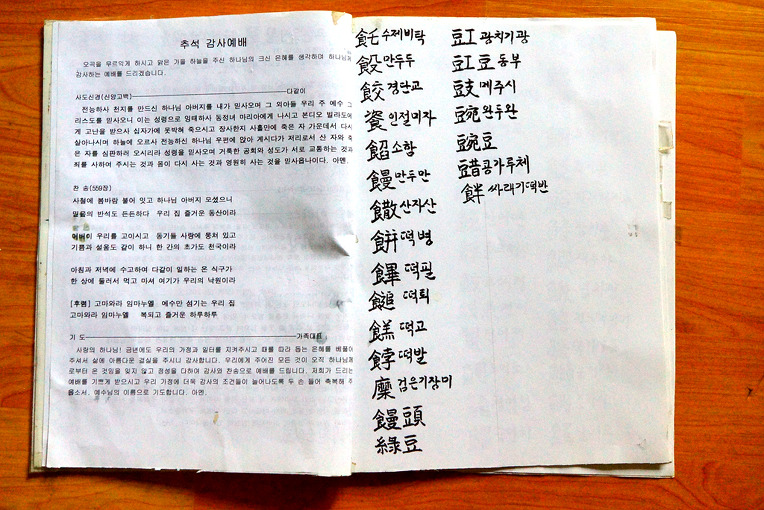 추석 감사예배
오곡을 무르익게 하시고 맑은 가을 하늘을 주신 하나님의 크신 은혜를 생각하며 하나님께
감사하는 예배를 드리겠습니다.
사도신경(신앙고백) 다같이
전능하사 천지를 만드신 하나님 아버지를 내가 믿사오며 그 외아들 우리 주 예수 그
리스도를 믿사오니 이는 성령으로 잉태하사 동정녀 마리아에게 나시고 본디오 빌라도에
게 고난을 받으사 십자가에 못박혀 죽으시고 장사한지 사흘만에 죽은 자 가운데서 다시
살아나시며 하늘에 오르사 전능하신 하나님 우편에 앉아 계시다가 저리로서 산 자와 죽
은 자를 심판하러 오시리라 성령을 믿사오며 거룩한 공회와 성도가 서로 교통하는 것과
죄를 사하여 주시는 것과 몸이 다시 사는 것과 영원히 사는 것을 믿사옵나이다. 아멘.
찬 송(559장)
사철에 봄바람 불어 잇고 하나님 아버지 모셨으니
믿음의 반석도 든든하다 우리 집 즐거운 동산이라
어버이 우리를 고이시고 동기들 사랑에 뭉쳐 있고
기쁨과 설움도 같이 하니 한 간의 초가도 천국이라
아침과 저녁에 수고하여 다같이 일하는 온 식구가
한 상에 둘러서 먹고 마셔 여기가 우리의 낙원이라
[후렴] 고마와라 임마누엘 예수만 섬기는 우리 집
고마와라 임마누엘 복되고 즐거운 하루하루
기 도 가족대표
사랑의 하나님! 금년에도 우리의 가정과 일터를 지켜주시고 때를 따라 돕는 은혜를 베풀어
주셔서 삶에 아름다운 결실을 주시니 감사합니다. 우리에게 주어진 모든 것이 오직 하나님께
로부터 온 것임을 잊지 않고 정성을 다하여 감사와 찬송으로 예배를 드립니다. 저희가 드리는
예배를 기쁘게 받으시고 우리 가정에 더욱 감사의 조건들이 늘어나도록 두 손 들어 축복해 주
옵소서. 예수님의 이름으로 기도합니다. 아멘.
飥 수제비탁
만두두
餃 경단교
餈 인절미자
餡 소함
饅 만두만
饊 산자산
餠 떡 병
饆 떡필
떡퇴
餻 떡고
餑 떡발
穈 검은기장미
饅頭
綠豆
광치기광
豇豆 동부
豉 메주시
豌 완두완
豌豆
콩가루체
싸래기떡반